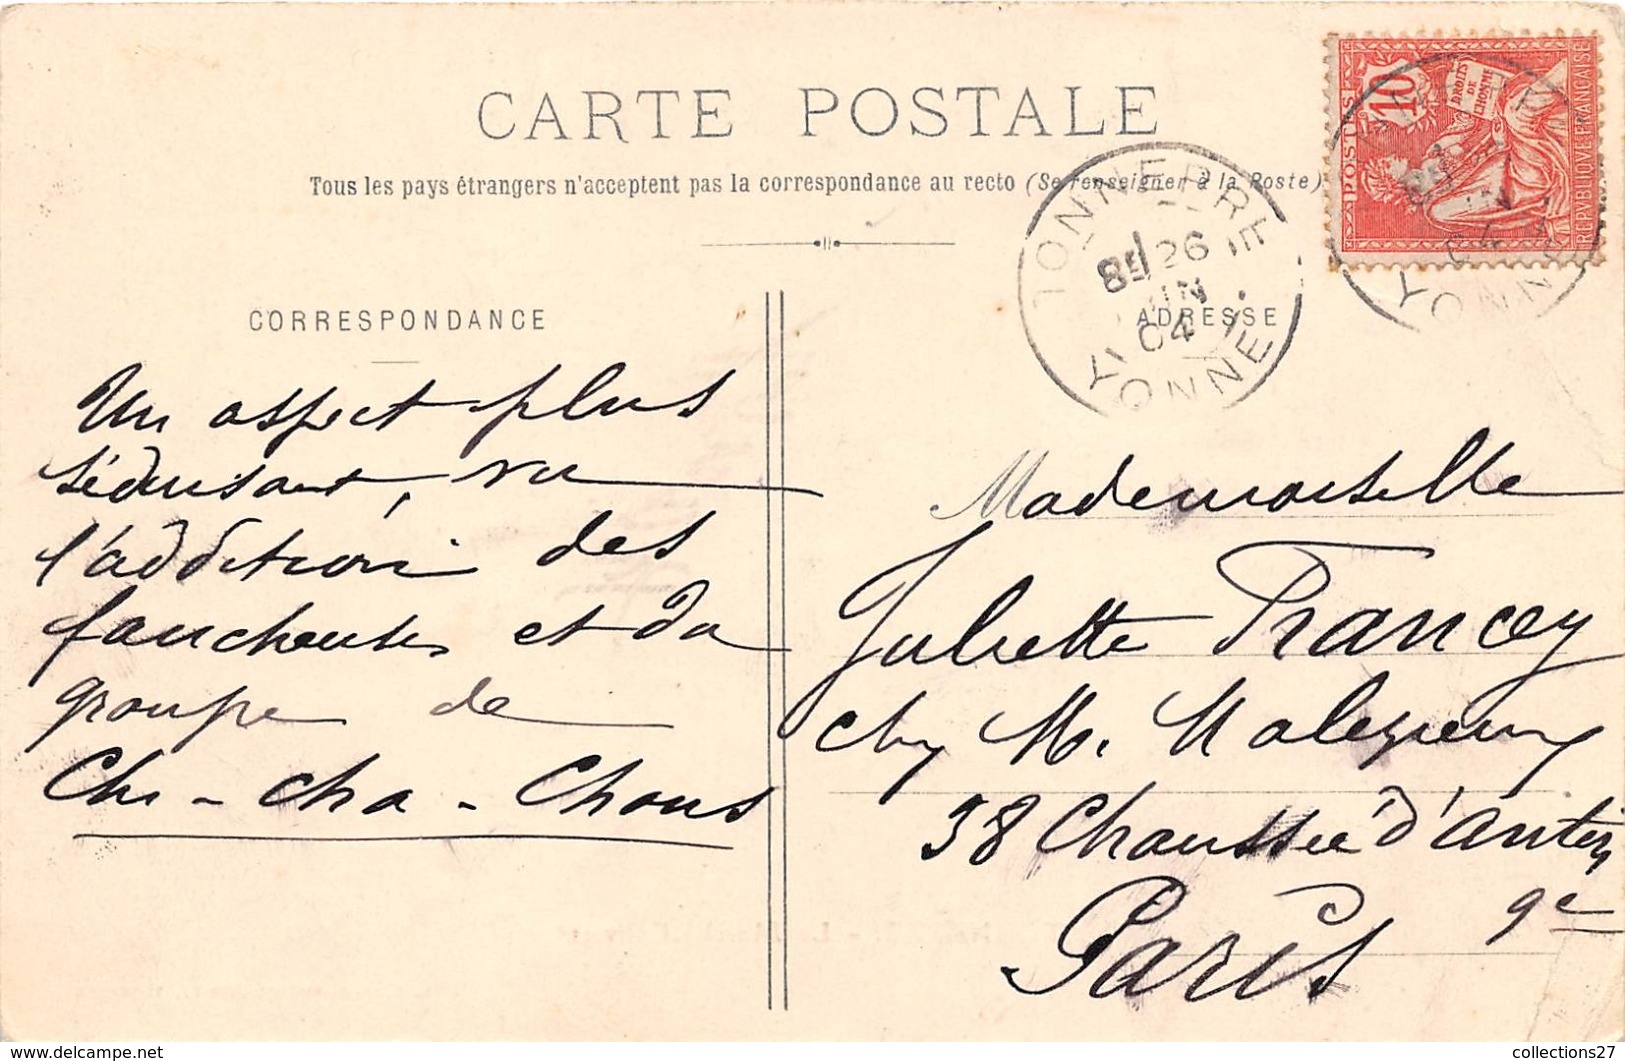 CARTE POSTALE
Tous les pays étrangers n'acceptent pas la correspondance au recto (Se renseigner à la Poste)
10
POSTES
DROITS
DE
L'HOMME
REPVBLIQVE FRANÇAISE
TONNERRE
8E 26
JUIN
04
YONNE
YONNE
CORRESPONDANCE
Un aspect plus
séduisant, vu
l'addition des
faucheuses et du
groupe de
Chi-cha-Chous
ADRESSE
Mademoiselle
Juliette Francey
chez M.
38 Chaussée d'Antin
9e
Paris
collections27